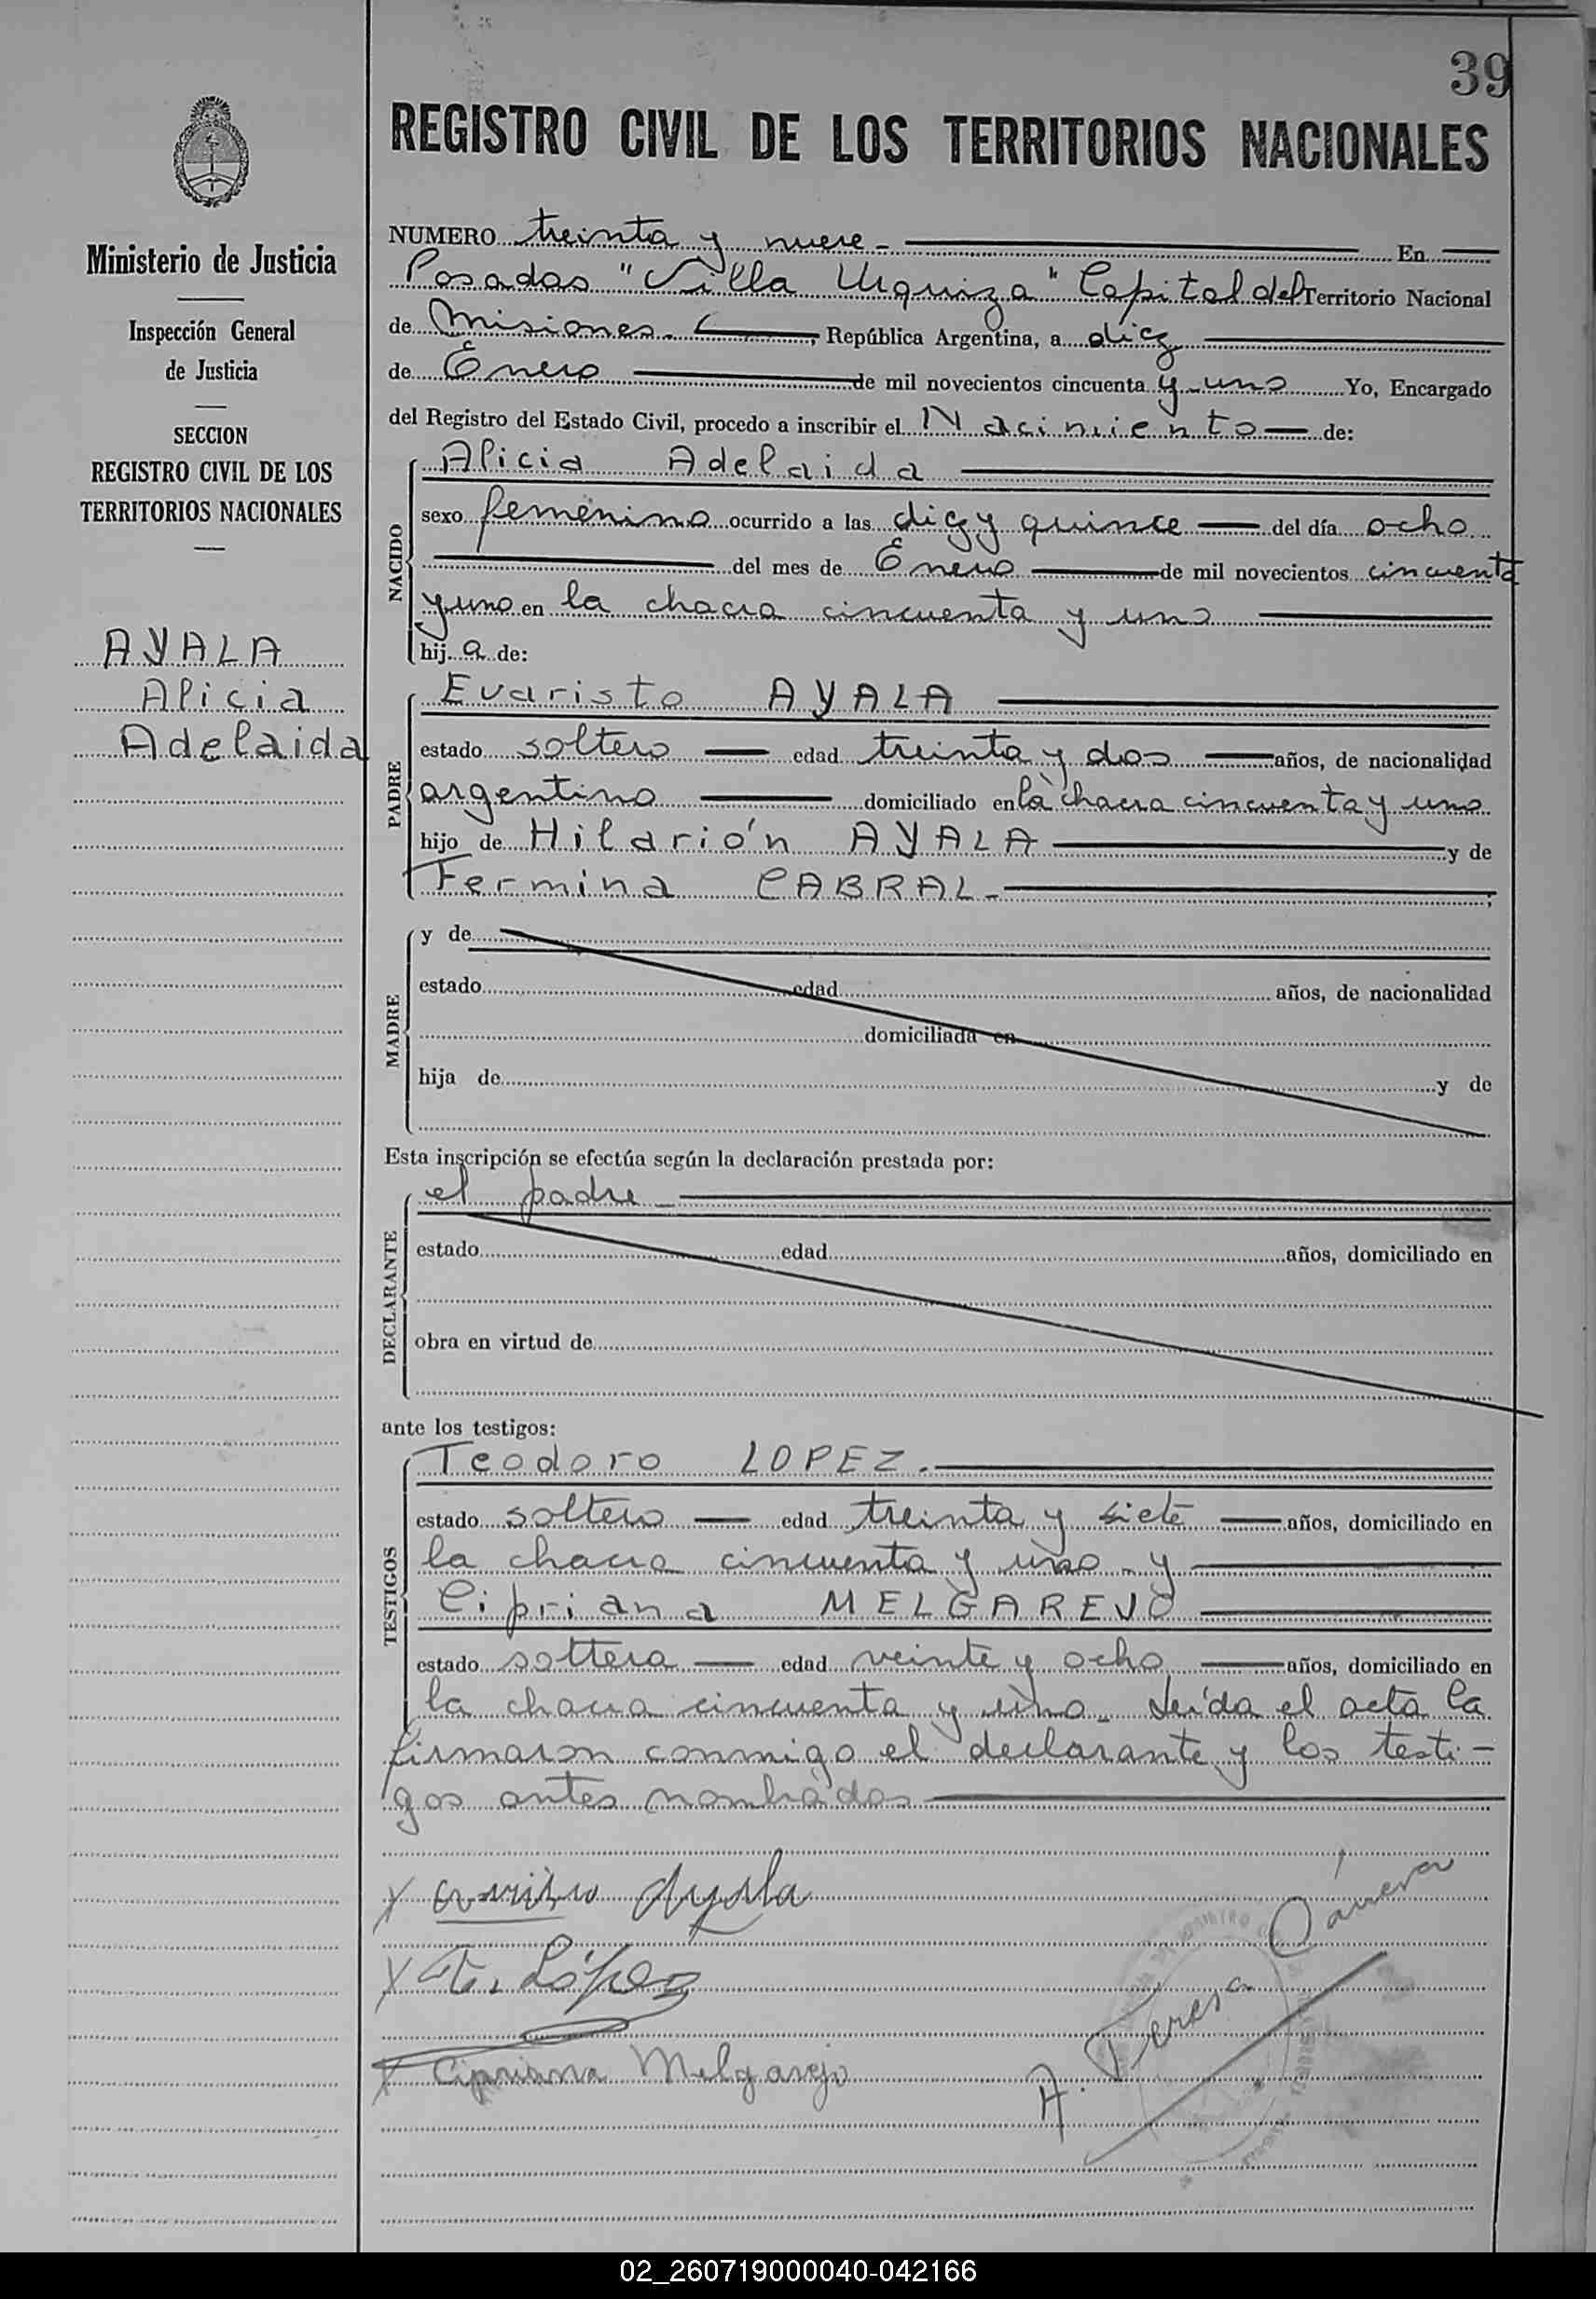 39
REGISTRO CIVIL DE LOS TERRITORIOS NACIONALES
Ministerio de Justicia
Inspección General
de Justicia
SECCION
REGISTRO CIVIL DE LOS
TERRITORIOS NACIONALES
AYALA
Alicia
Adelaida
NUMERO treinta y nueve - En
Posadas "Villa Urquiza" Capital del Territorio Nacional
de Misiones. , República Argentina, a diez
de Enero de mil novecientos cincuenta y uno Yo, Encargado
del Registro del Estado Civil, procedo a inscribir el Nacimiento de:
NACIDO
Alicia Adelaida
sexo femenino ocurrido a las diez y quince del día ocho
del mes de Enero de mil novecientos cincuenta
y uno en la chacra cincuenta y uno
hij a de:
PADRE
Evaristo AYALA
estado soltero edad treinta y dos años, de nacionalidad
argentino domiciliado en la chacra cincuenta y uno
hijo de Hilarión AYALA y de
Fermina CABRAL - ;
MADRE
y de
estado edad años, de nacionalidad
domiciliada en
hija de y de
Esta inscripción se efectúa según la declaración prestada por:
DECLARANTE
el padre -
estado edad años, domiciliado en
obra en virtud de
ante los testigos:
TESTIGOS
Teodoro LOPEZ.
estado soltero edad treinta y siete años, domiciliado en
la chacra cincuenta y uno - y
Cipriana MELGAREJO
estado soltera edad veinte y ocho años, domiciliado en
la chacra cincuenta y uno - Leída el acta la
firmaron conmigo el declarante y los testi-
gos antes nombrados
x Ayala
x T. López
x Cipriana Melgarejo
A. Teresa Cámera
02_260719000040-042166